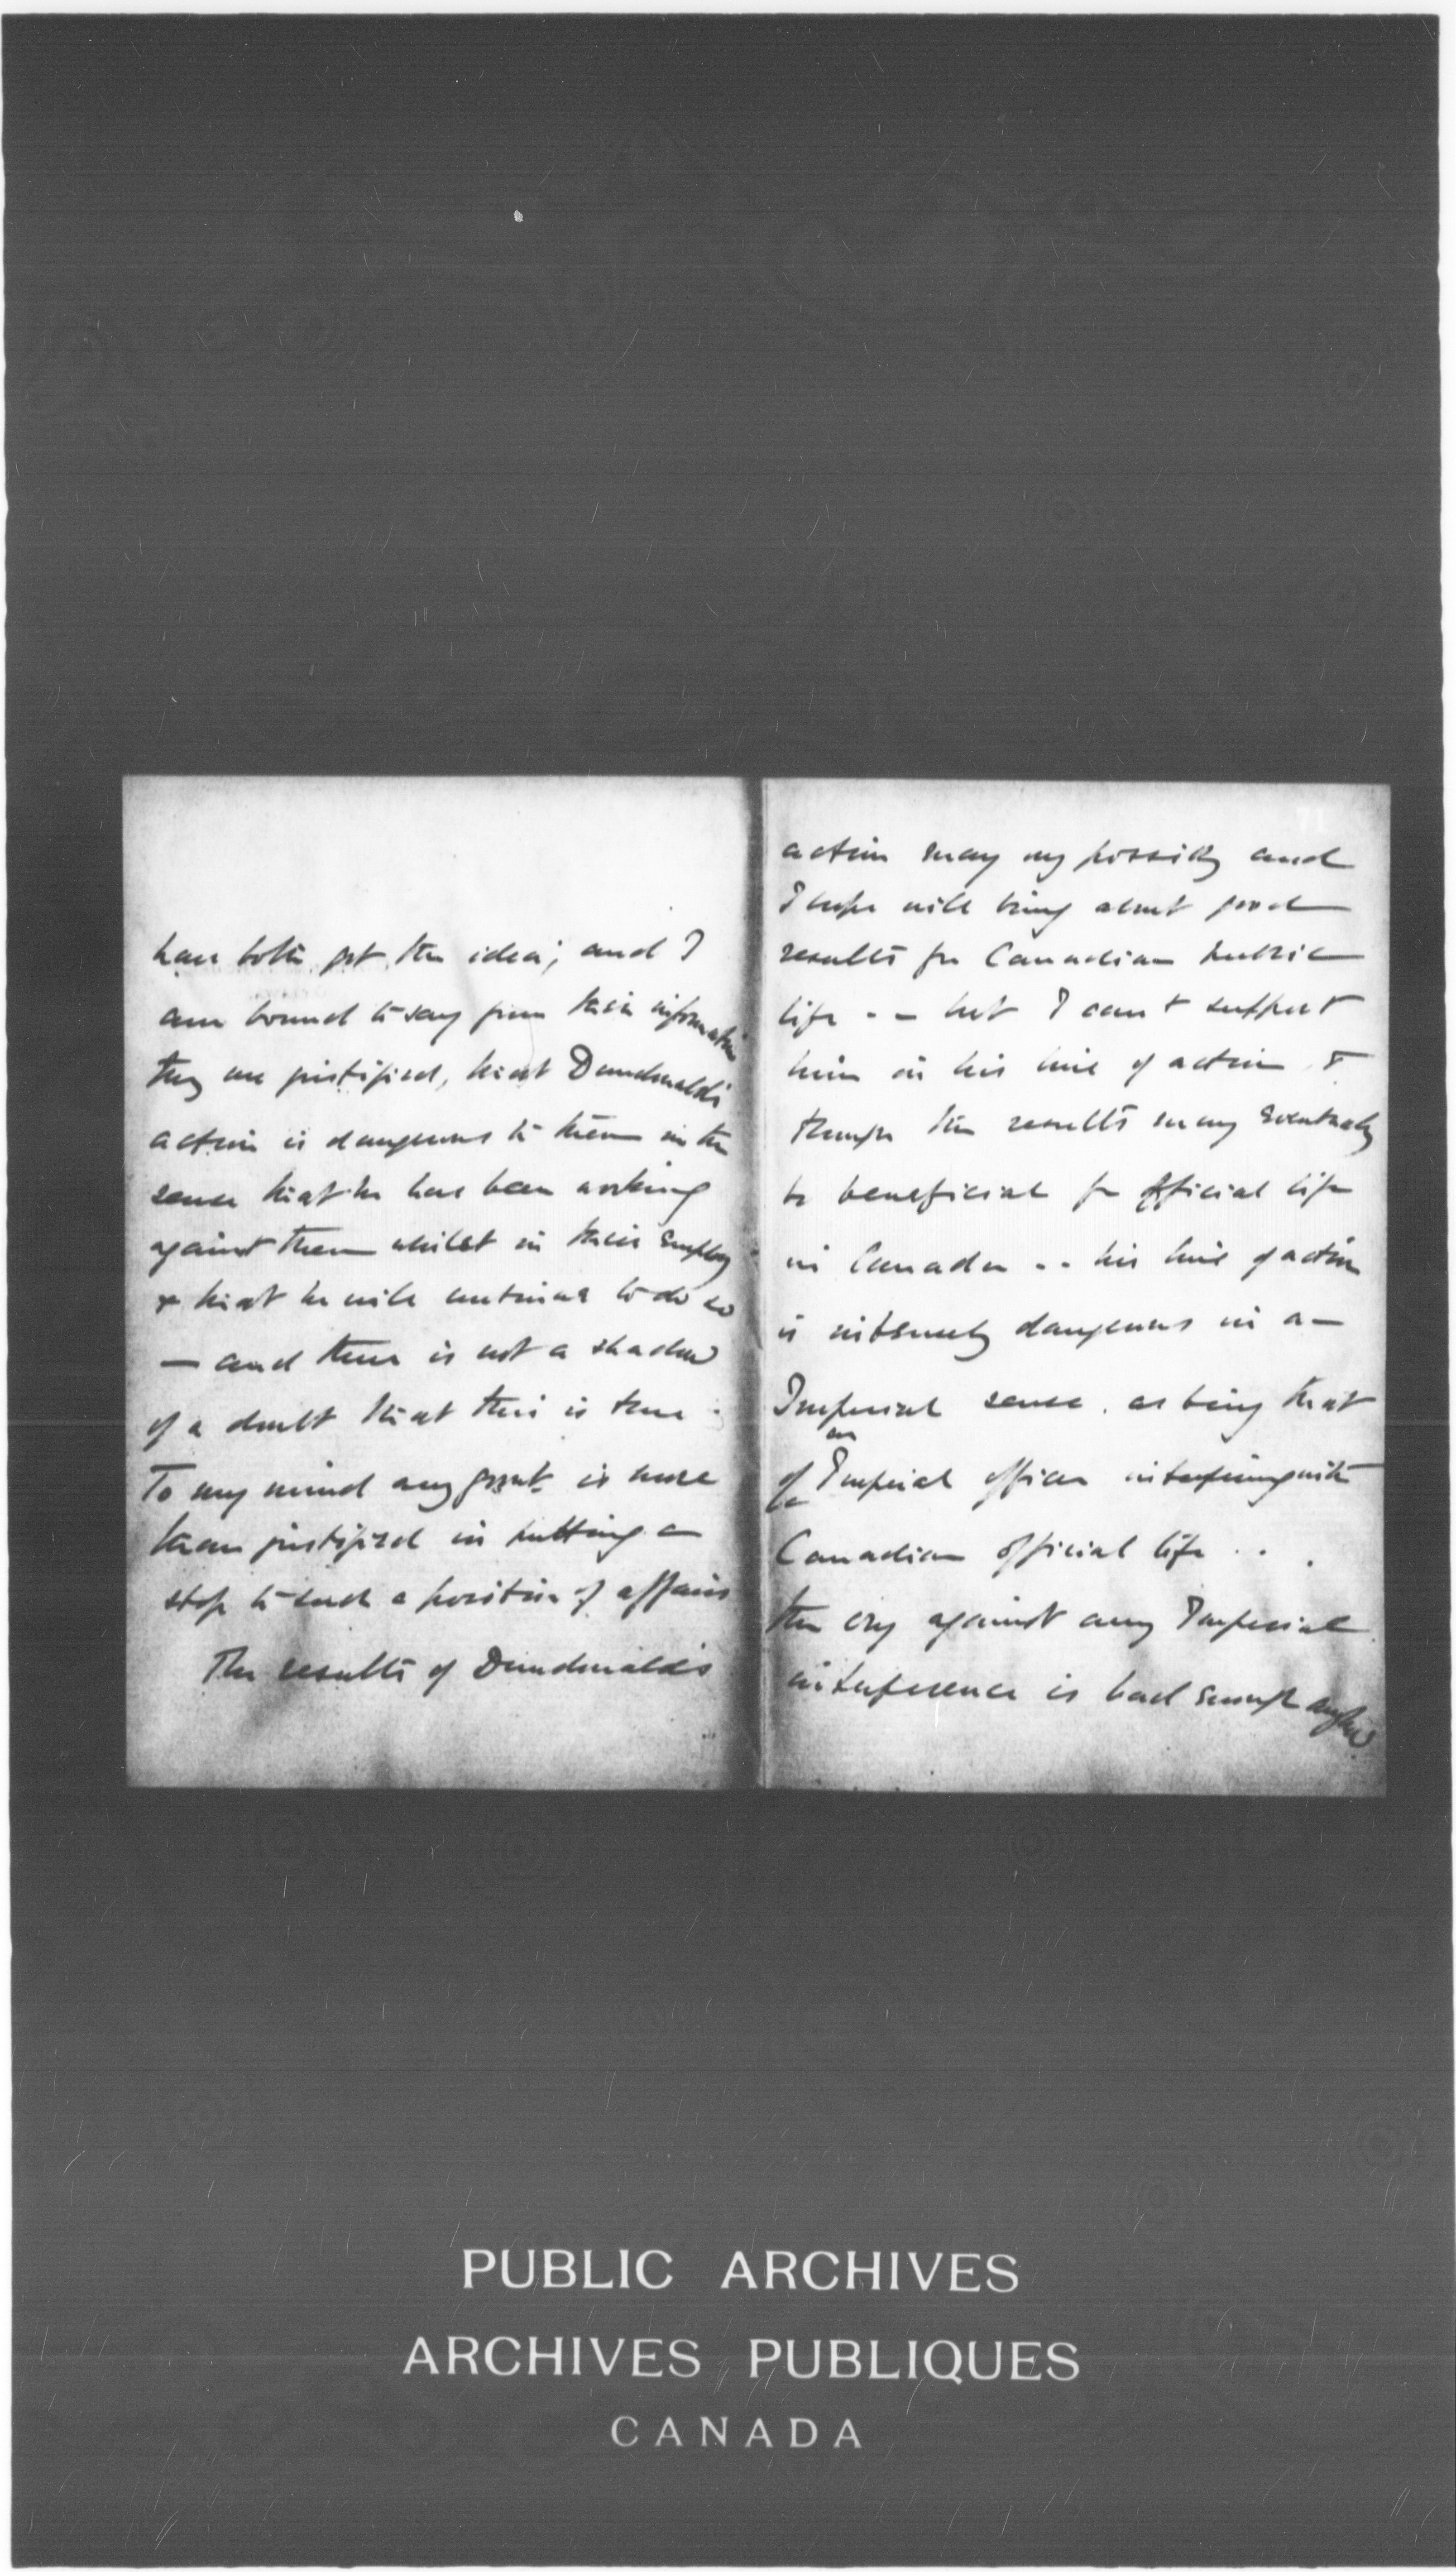 have both got the idea; and I
am bound to say from their information
they are justified, that Dundonald's
action is dangerous to them in the
sense that he has been working
against them whilst in their employ
& that he will continue to do so
— and there is not a shadow
of a doubt that this is true.
To my mind any govt. is more
than justified in putting a
stop to such a position of affairs
The results of Dundonald's
action may very possibly and
I hope will bring about good
results for Canadian public
life -- but I can't support
him in his line of action &
though the results may eventually
be beneficial for official life
in Canada -- his line of action
is intensely dangerous in an
Imperial sense. as being that
of an Imperial officer interfering with
Canadian official life . . .
the cry against any Imperial
interference is bad enough anyhow
PUBLIC ARCHIVES
ARCHIVES PUBLIQUES
CANADA